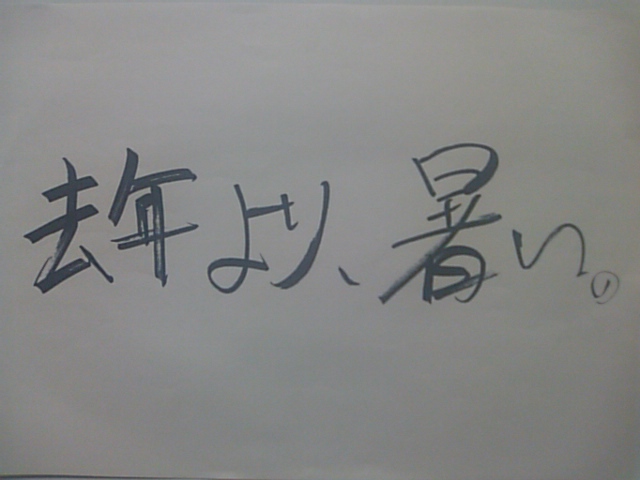 去年より、暑い。